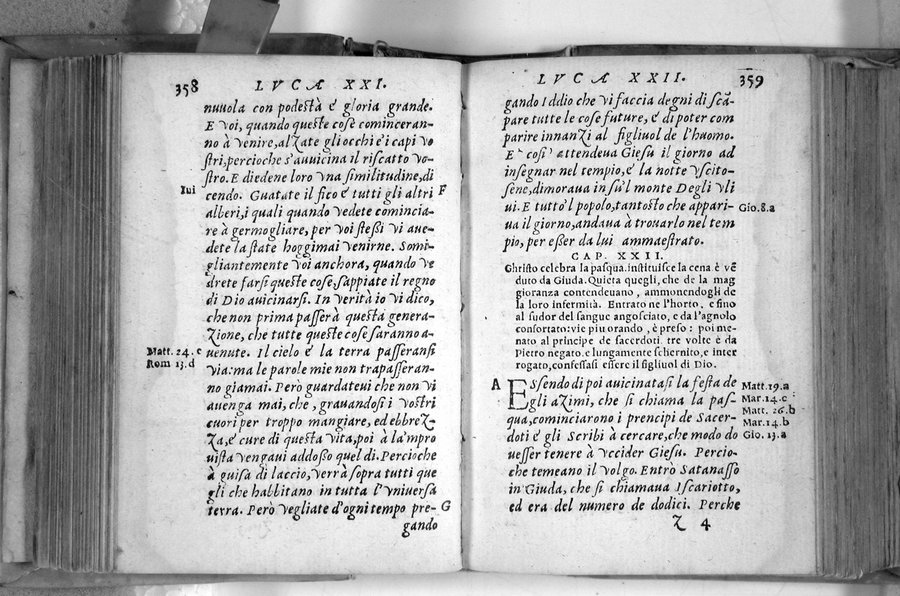 358
LVCA XXI.
nuuola con podestà e gloria grande.
E voi, quando queste cose cominceran-
no à venire, alzate gli occhi e i capi vo
stri, percioche s'auuicina il riscatto vo-
stro. E diedene loro vna similitudine, di
Iui
cendo. Guatate il fico e tutti gli altri
F
alberi, i quali quando vedete comincia-
re à germogliare, per voi stessi vi aue-
dete la state hoggimai venirne. Somi-
gliantemente voi anchora, quando ve
drete farsi queste cose, sappiate il regno
di Dio auicinarsi. In verità io vi dico,
che non prima passerà questa genera-
zione, che tutte queste cose saranno a-
Matt. 24. c
uenute. Il cielo e la terra passeransi
Rom 13. d
via: ma le parole mie non trapasseran-
no giamai. Però guardateui che non vi
auenga mai, che, grauandosi i vostri
cuori per troppo mangiare, ed ebbrez-
za, e cure di questa vita, poi à la'mpro
uista vengaui addosso quel di. Percioche
à guisa di laccio, verrà sopra tutti que
gli che habbitano in tutta l'vniuersa
terra. Però vegliate d'ogni tempo pre-
G
gando
LVCA XXII.
359
gando Iddio che vi faccia degni di scā-
pare tutte le cose future, e di poter com
parire innanzi al figliuol de l'huomo.
E` cosi` attendeua Giesu il giorno ad
insegnar nel tempio, e la notte vscito-
sene, dimoraua in su'l monte Degli vli
ui. E tutto'l popolo, tantosto che appari-
Gio. 8. a
ua il giorno, andaua à trouarlo nel tem
pio, per esser da lui ammaestrato.
CAP. XXII.
Christo celebra la pasqua. instituisce la cena è vē
duto da Giuda. Quieta quegli, che de la mag
gioranza contendeuano, ammonendogli de
la loro infermità. Entrato ne l'horto, e fino
al sudor del sangue angosciato, e da l'agnolo
confortato: vie piu orando, è preso: poi me-
nato al principe de sacerdoti. tre volte è da
Pietro negato. e lungamente schernito, e inter
rogato, confessasi essere il figliuol di Dio.
A
Essendo di poi auicinatasi la festa de
Matt. 19. a
gli azimi, che si chiama la pas-
Mar. 14. c
qua, cominciarono i prencipi de Sacer-
Matt. 26. b
Mar. 14. b
doti e gli Scribi à cercare, che modo do
Gio. 13. a
uesser tenere à vccider Giesu. Percio-
che temeano il volgo. Entrò Satanasso
in Giuda, che si chiamaua Iscariotto,
ed era del numero de dodici. Perche
Z 4